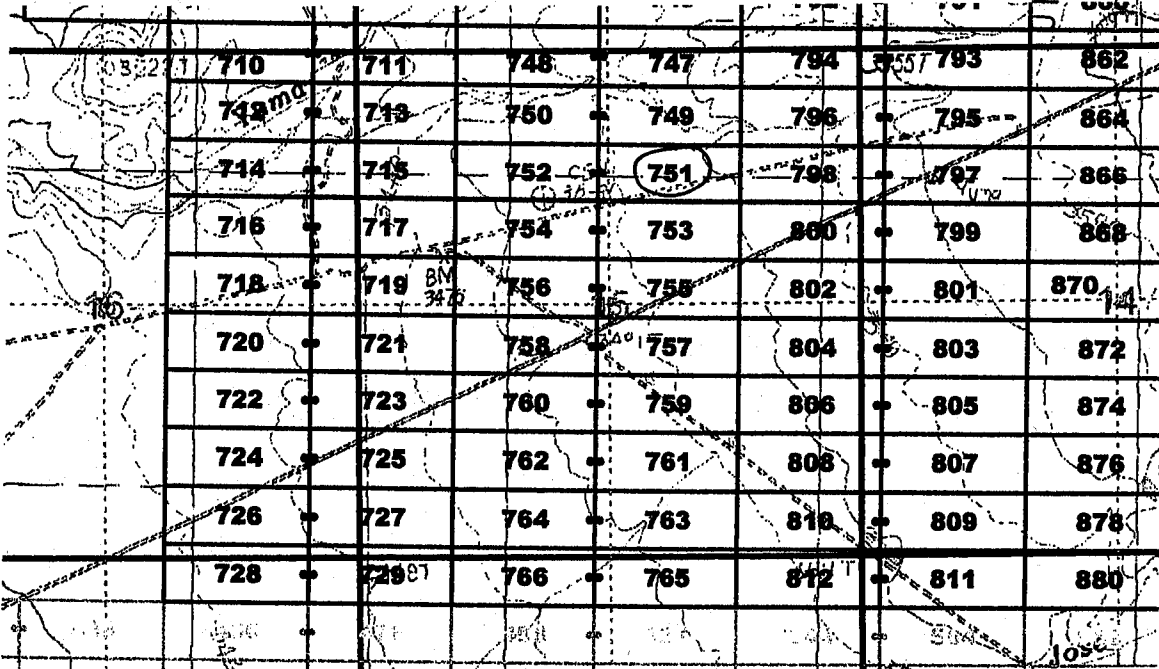 710 711 748 747 794 3555T 793 862
712 713 750 749 796 795 864
714 715 752 751 798 797 866
716 717 754 753 800 799 868
718 719 756 755 802 801 870 14
BM
16 15
720 721 758 757 804 803 872
722 723 760 759 806 805 874
724 725 762 761 808 807 876
726 727 764 763 810 809 878
728 729 766 765 812 811 880